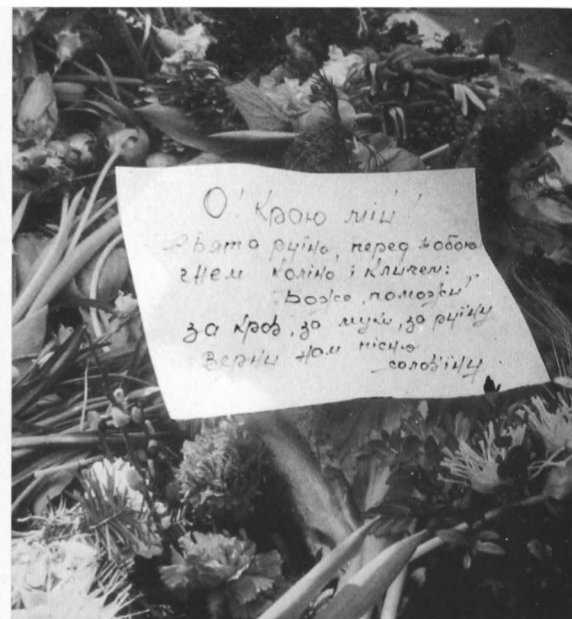 О! Краю мій!
свята руїно, перед тобою
гнем коліна і кличем:
"Боже, поможи!"
за кров, за муки, за руїну
верни нам пісню
солов'їну.